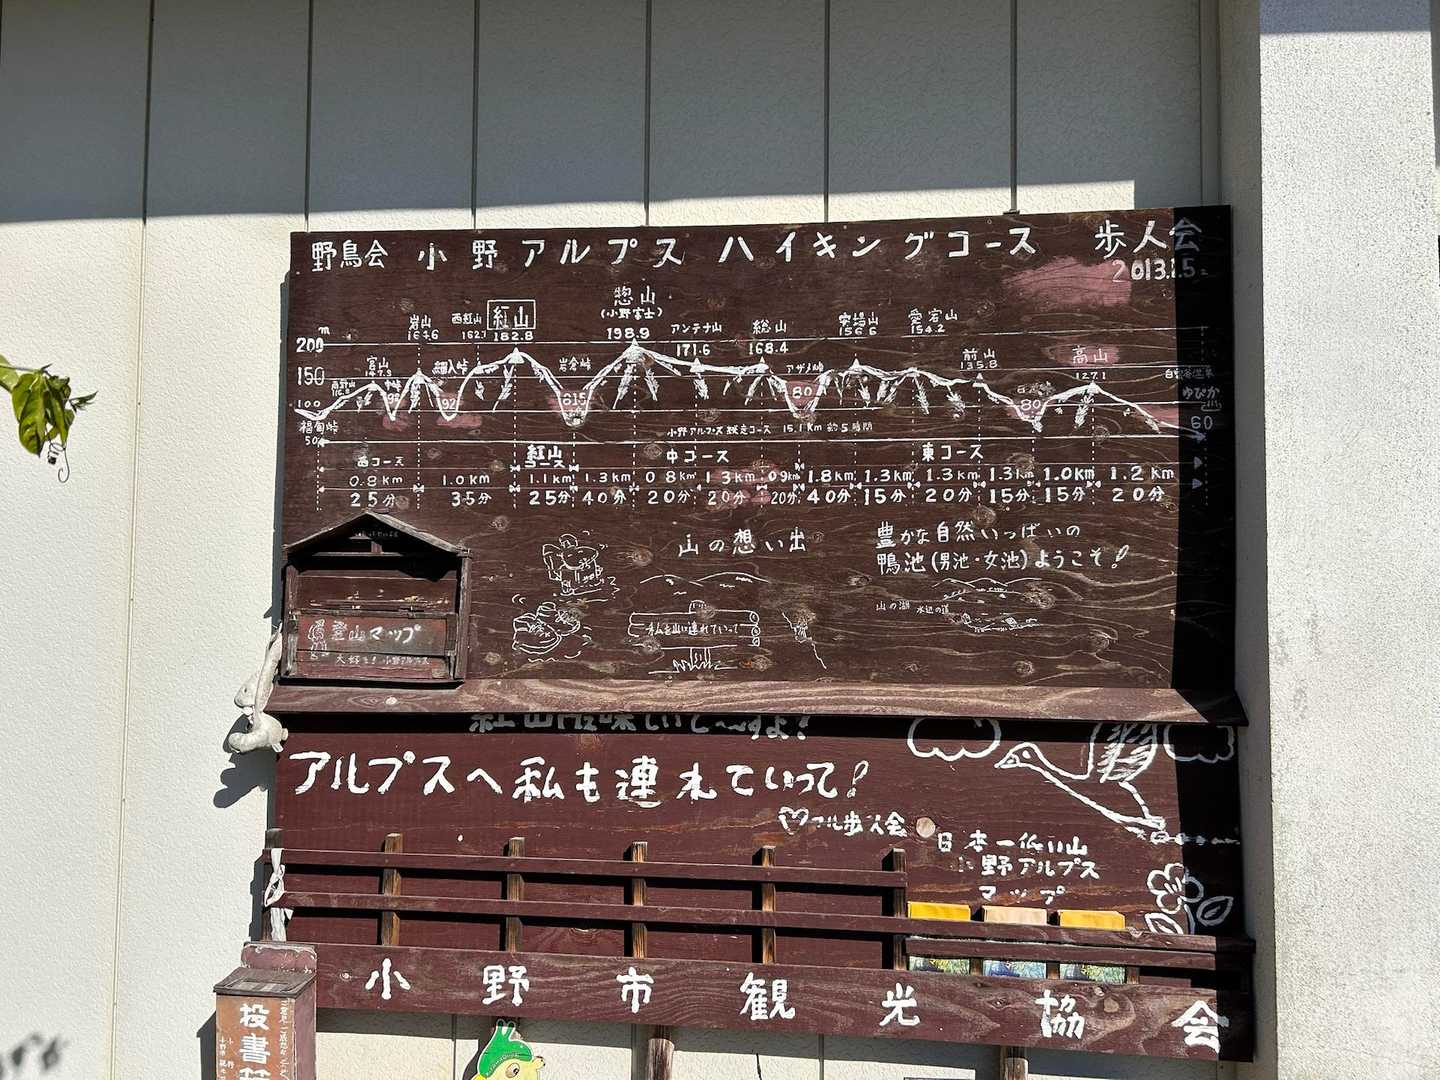 野鳥会 小野アルプス ハイキングコース 歩人会
2013.1.5
惣山
(小野富士)
198.9
紅山
182.8
岩山
西紅山
アンテナ山
171.6
総山
168.4
安場山
156.6
愛宕山
154.2
前山
135.8
高山
127.1
宮山
細入峠
岩倉峠
アザメ峠
m
200
150
100
50
92
80
80
60
ゆぴか
福甸峠
小野アルプス縦走コース 15.1Km 約5時間
西コース
紅山コース
中コース
東コース
0.8km 1.0km 1.1km 1.3km 0.8km 1.3km 0.9km 1.8km 1.3km 1.3km 1.3km 1.0km 1.2km
25分 35分 25分 40分 20分 20分 20分 40分 15分 20分 15分 15分 20分
山の想い出
豊かな自然いっぱいの
鴨池(男池・女池)ようこそ!
山の湖 水辺の道
私を山に連れていって
登山マップ
大好き!小野アルプス
アルプスへ私も連れていって!
歩人会
日本一低い山
小野アルプス
マップ
小野市観光協会
投書箱